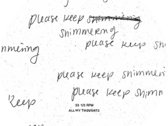 please keep shimmering
shimmering
mmering
please keep shi
please keep shimmeri
please keep shimm
keep
33 1/3 RPM
ALL MY THOUGHTS